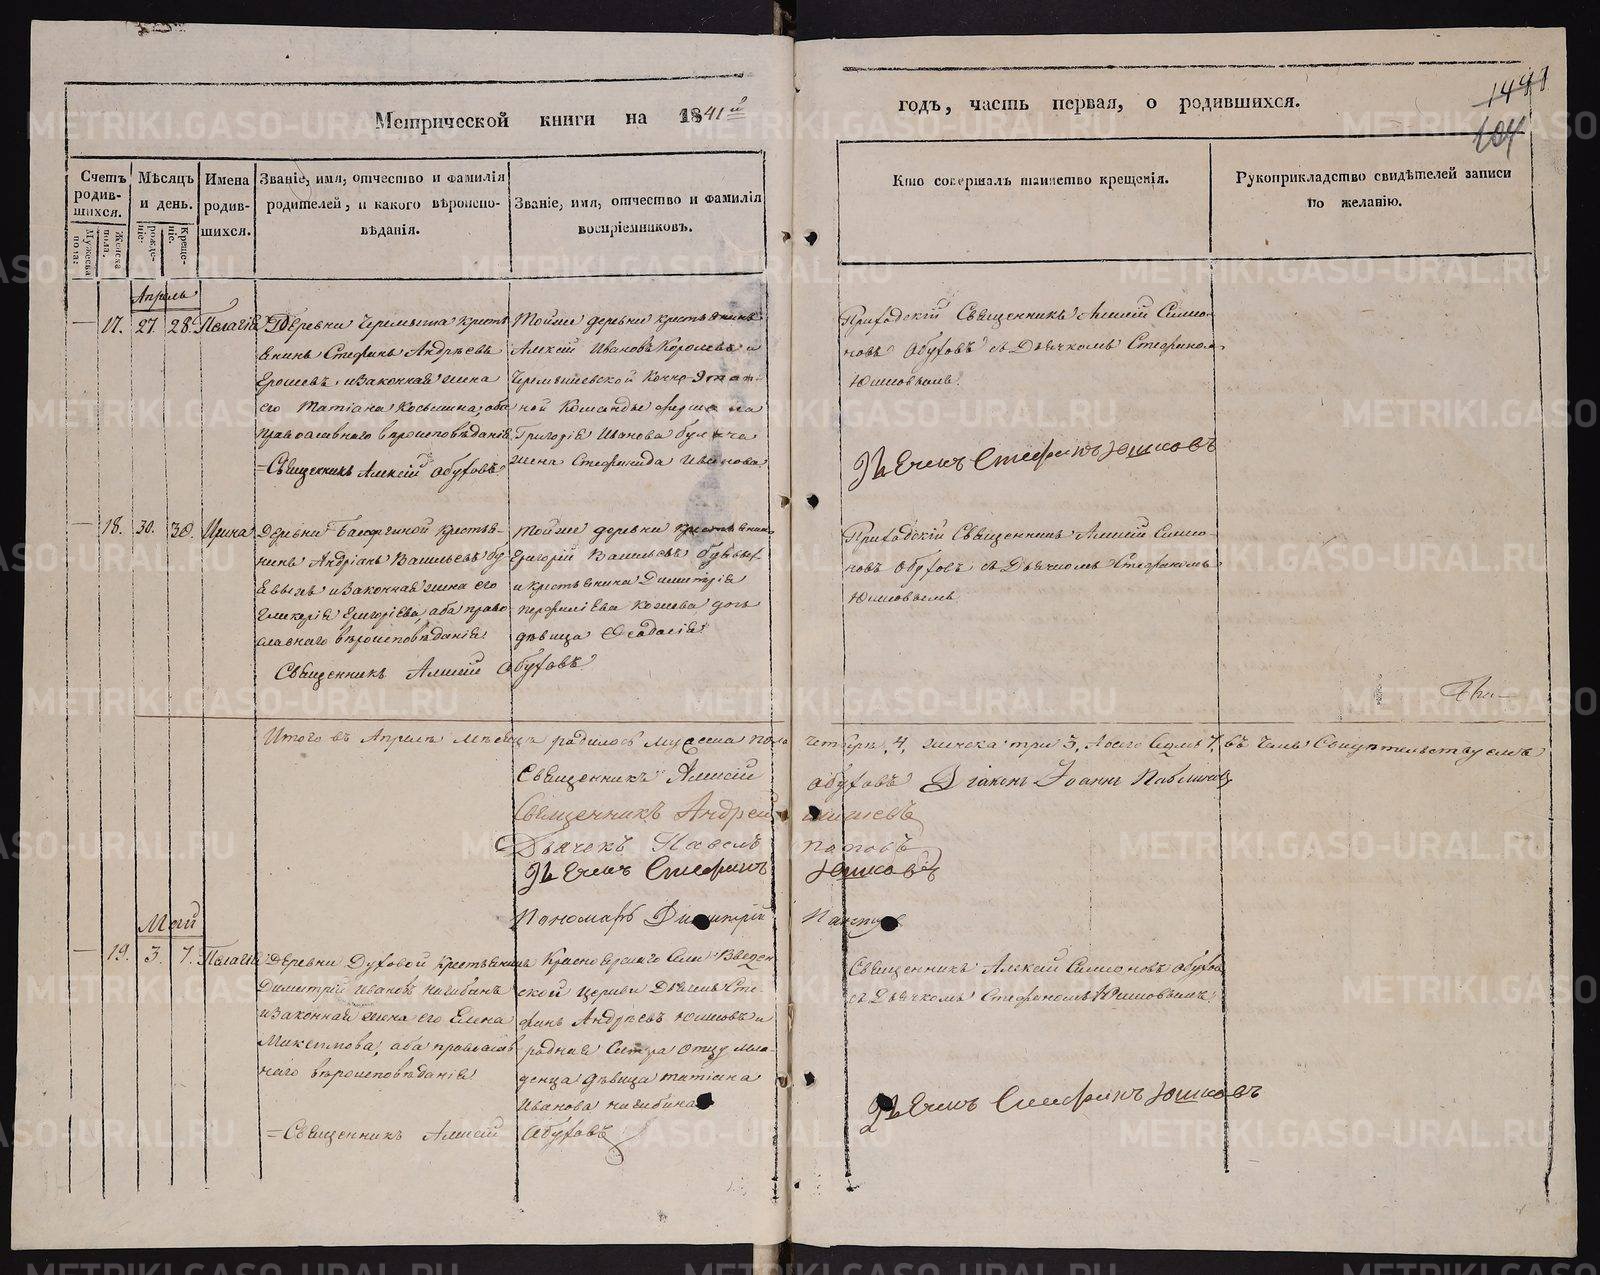 Метрической книги на 1841й
годъ, часть первая, о родившихся.
1491
104
Счетъ родившихся.
Мужеска пола:
Женска пола.
Мѣсяцъ и день.
рожденіе.
Крещеніе.
Имена родившихся.
Званіе, имя, отчество и фамилія
родителей, и какого вѣроиспо-
вѣданія.
Званіе, имя, отчество и фамилія
воспріемниковъ.
Кто совершалъ таинство крещенія.
Рукоприкладство свидѣтелей записи
по желанію.
Апрель
17. 27 28. Пелагія
Деревни Черемыша кресть
янинъ Стефанъ Андрѣевъ
и законная жена
его Татіана Косьмина, оба
православнаго вѣроисповѣданія
Священникъ Алексій Обуховъ
Тойже деревни крестьянинъ
Алексій Ивановъ Королевъ и
Черемышевской Конно-Этап-
ной Команды
Григорія Иванова
жена Стефанида Иванова
Приходскій Священникъ Алексій Симео-
новъ Обуховъ съ Дьячкомъ Стефаномъ
Юшковымъ.
Дьячекъ Стефанъ Юшковъ
18. 30. 30. Ирина
Деревни крестья-
нинъ Андріанъ Васильевъ
и законная жена его
Гликерія Григоріева, оба право-
славнаго вѣроисповѣданія
Священникъ Алексій Обуховъ
Тойже деревни крестьянинъ
Григорій Васильевъ
и крестьянина Димитрія
дочь
дѣвица Феодосія
Приходскій Священникъ Алексій Симео-
новъ Обуховъ съ Дьячкомъ Стефаномъ
Юшковымъ
Итого въ Апрелѣ мѣсяцѣ родилось мужеска пола четыре, 4, женска три 3, Всего Семь 7, въ чемъ Свидѣтельствуемъ
Священникъ Алексій Обуховъ Діаконъ Іоаннъ
Священникъ Андрей
Дьячекъ Павелъ Поповъ
Дьячекъ Стефанъ Юшковъ
Пономарь Димитрій
Май
19. 3. 7. Пелагія
Деревни Духовой Крестьянинъ
Димитрій Ивановъ Нагибинъ
и законная жена его Елена
Максимова, оба православ-
наго вѣроисповѣданія
Священникъ Алексій Обуховъ
Красноярскаго Села Введен
ской церкви Дьячекъ Сте-
фанъ Андрѣевъ Юшковъ и
родная Сестра отцу мла-
денца дѣвица Татіана
Иванова Нагибина
Священникъ Алексій Симеоновъ Обуховъ
съ Дьячкомъ Стефаномъ Юшковымъ
Дьячекъ Стефанъ Юшковъ
METRIKI.GASO-URAL.RU